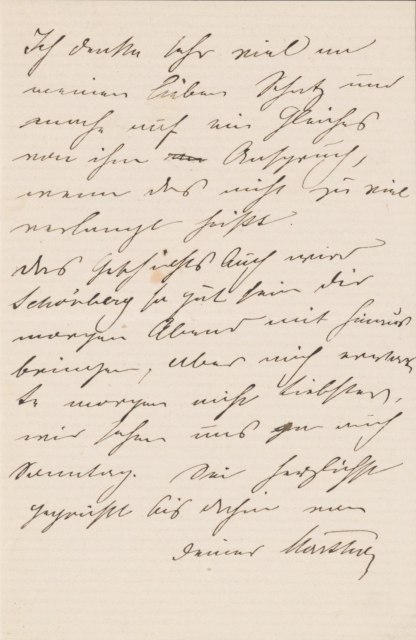 Ich denke sehr viel an
meinen lieben Schatz und
mache auf ein Gleiches
von ihm Anspruch,
wenn das nicht zu viel
verlangt heißt.
Das auch wird
Schönberg so gut sein dir
morgen Abend mit hinaus
bringen, aber mich erwar
te morgen nicht Liebster,
wir sehen uns ja auch
Sonntag. Sei herzlichst
gegrüßt bis dahin von
deiner Martha